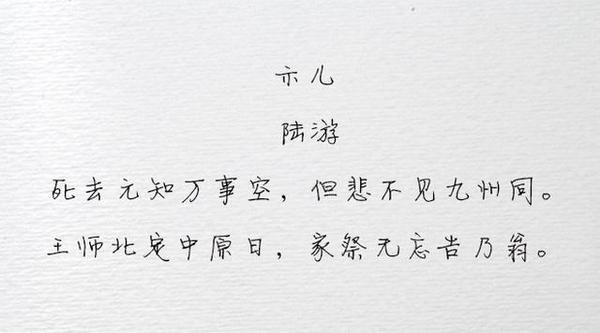 示儿
陆游
死去元知万事空，但悲不见九州同。
王师北定中原日，家祭无忘告乃翁。